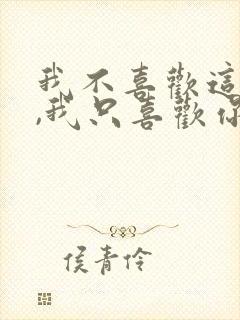 我不喜歡這
,我只喜歡你
侯青伶